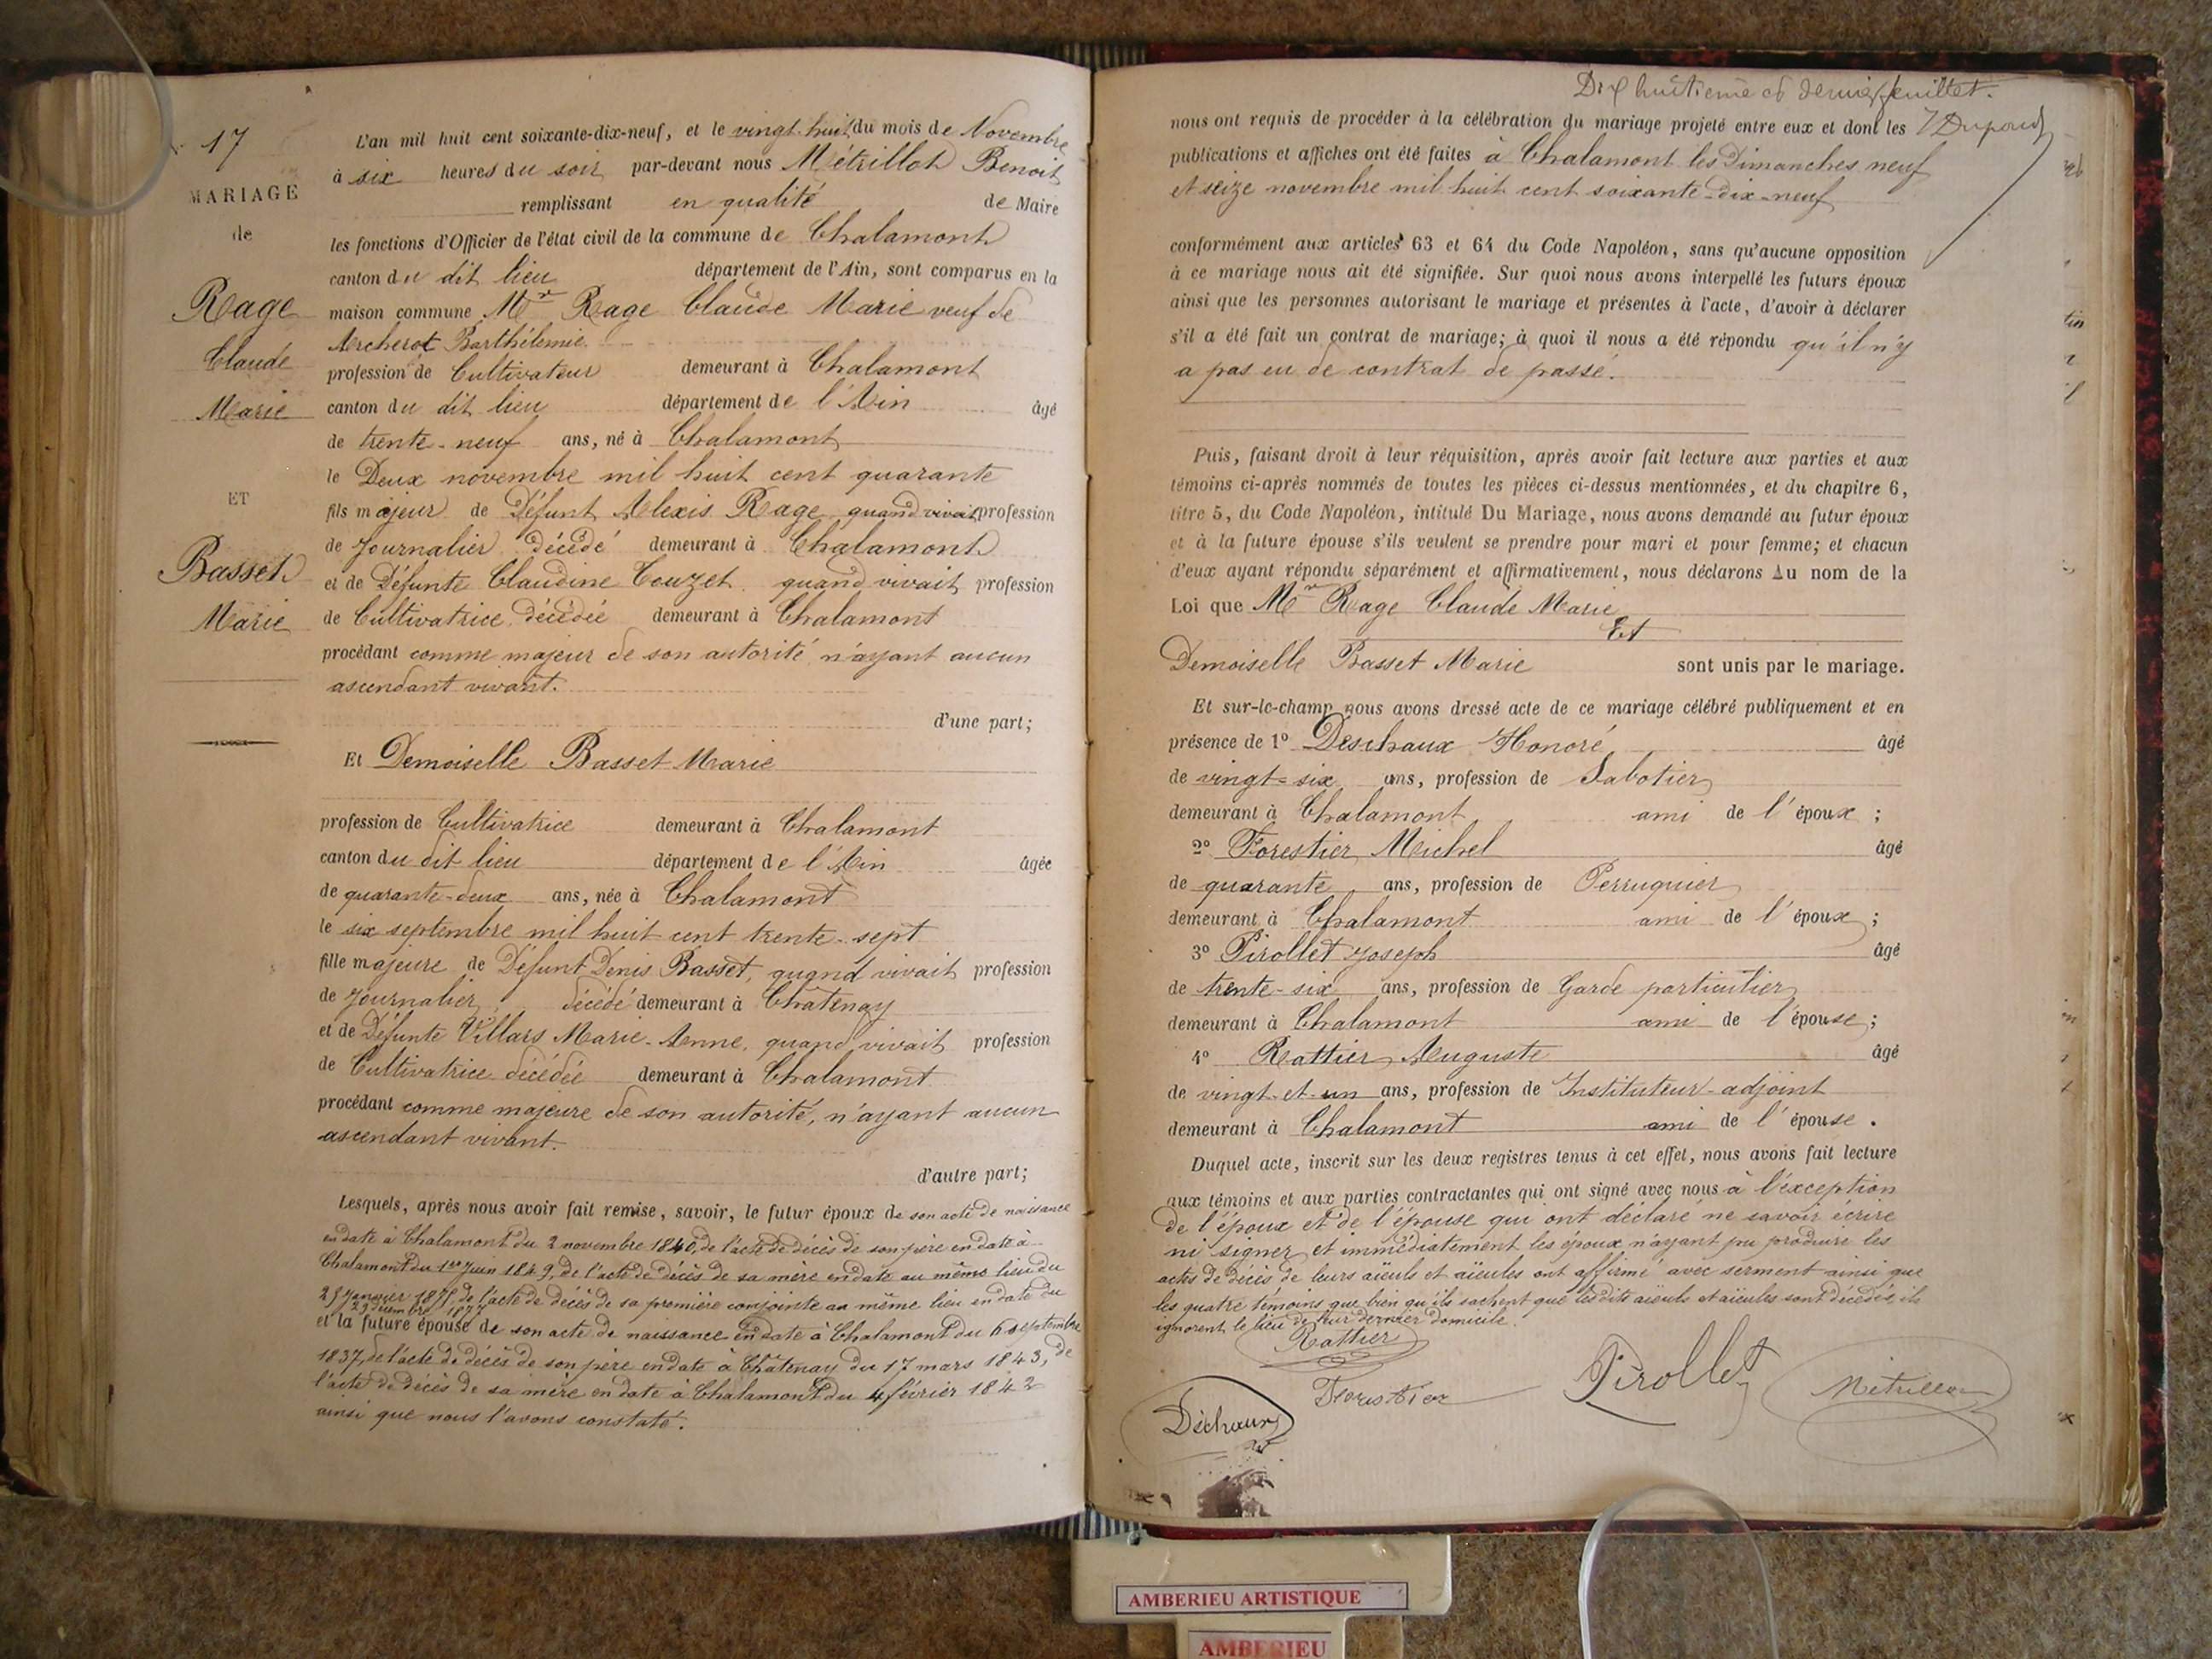 17
MARIAGE
de
Rage
Claude
Marie
ET
Basset
Marie
L'an mil huit cent soixante-dix-neuf, et le vingt-huit du mois de Novembre
à six heures du soir par-devant nous Métrillot Benoit
remplissant en qualité de Maire
les fonctions d'Officier de l'état civil de la commune de Chalamont
canton du dit lieu département de l'Ain, sont comparus en la
maison commune Mr Rage Claude Marie veuf de
Archerot Barthélemie
profession de Cultivateur demeurant à Chalamont
canton du dit lieu département de l'Ain âgé
de trente-neuf ans, né à Chalamont
le Deux novembre mil huit cent quarante
fils majeur de Défunt Alexis Rage quand vivait profession
de Journalier décédé demeurant à Chalamont
et de Défunte Claudine Touzet quand vivait profession
de Cultivatrice décédée demeurant à Chalamont
procédant comme majeur de son autorité n'ayant aucun
ascendant vivant.
d'une part;
Et Demoiselle Basset Marie
profession de Cultivatrice demeurant à Chalamont
canton du dit lieu département de l'Ain âgée
de quarante-deux ans, née à Chalamont
le six septembre mil huit cent trente-sept
fille majeure de Défunt Denis Basset, quand vivait profession
de Journalier décédé demeurant à Châtenay
et de Défunte Villars Marie-Anne, quand vivait profession
de Cultivatrice décédée demeurant à Chalamont
procédant comme majeure de son autorité, n'ayant aucun
ascendant vivant.
d'autre part;
Lesquels, après nous avoir fait remise, savoir, le futur époux de son acte de naissance
en date à Chalamont du 2 novembre 1840, de l'acte de décès de son père en date à
Chalamont du 1er Juin 1849, de l'acte de décès de sa mère en date au même lieu du
25 Janvier de l'acte de décès de sa première conjointe au même lieu en date du
29 1877
et la future épouse de son acte de naissance en date à Chalamont du 6 septembre
1837, de l'acte de décès de son père en date à Châtenay du 17 mars 1843, de
l'acte de décès de sa mère en date à Chalamont du 4 février 1842
ainsi que nous l'avons constaté.
Dix huitième et dernier feuillet.
nous ont requis de procéder à la célébration du mariage projeté entre eux et dont les
publications et affiches ont été faites à Chalamont les Dimanches neuf
et seize novembre mil huit cent soixante-dix-neuf
conformément aux articles 63 et 64 du Code Napoléon, sans qu'aucune opposition
à ce mariage nous ait été signifiée. Sur quoi nous avons interpellé les futurs époux
ainsi que les personnes autorisant le mariage et présentes à l'acte, d'avoir à déclarer
s'il a été fait un contrat de mariage; à quoi il nous a été répondu qu'il n'y
a pas eu de contrat de passé.
Puis, faisant droit à leur réquisition, après avoir fait lecture aux parties et aux
témoins ci-après nommés de toutes les pièces ci-dessus mentionnées, et du chapitre 6,
titre 5, du Code Napoléon, intitulé Du Mariage, nous avons demandé au futur époux
et à la future épouse s'ils veulent se prendre pour mari et pour femme; et chacun
d'eux ayant répondu séparément et affirmativement, nous déclarons Au nom de la
Loi que Mr Rage Claude Marie
Et
Demoiselle Basset Marie sont unis par le mariage.
Et sur-le-champ nous avons dressé acte de ce mariage célébré publiquement et en
présence de 1º Deschaux Honoré âgé
de vingt-six ans, profession de Sabotier
demeurant à Chalamont ami de l'époux ;
2º Forestier Michel âgé
de quarante ans, profession de Perruquier
demeurant à Chalamont ami de l'époux ;
3º Pirollet Joseph âgé
de trente-six ans, profession de Garde particulier
demeurant à Chalamont ami de l'épouse ;
4º Rattier Auguste âgé
de vingt-et-un ans, profession de Instituteur-adjoint
demeurant à Chalamont ami de l'épouse .
Duquel acte, inscrit sur les deux registres tenus à cet effet, nous avons fait lecture
aux témoins et aux parties contractantes qui ont signé avec nous à l'exception
de l'époux et de l'épouse qui ont déclaré ne savoir écrire
ni signer, et immédiatement les époux n'ayant pu produire les
actes de décès de leurs aïeuls et aïeules ont affirmé avec serment ainsi que
les quatre témoins que bien qu'ils sachent que les dits aïeuls et aïeules sont décédés, ils
ignorent le lieu de leur dernier domicile.
Rattier
Forestier
Pirollet
Métrillot
Déchaux
AMBERIEU ARTISTIQUE
AMBERIEU